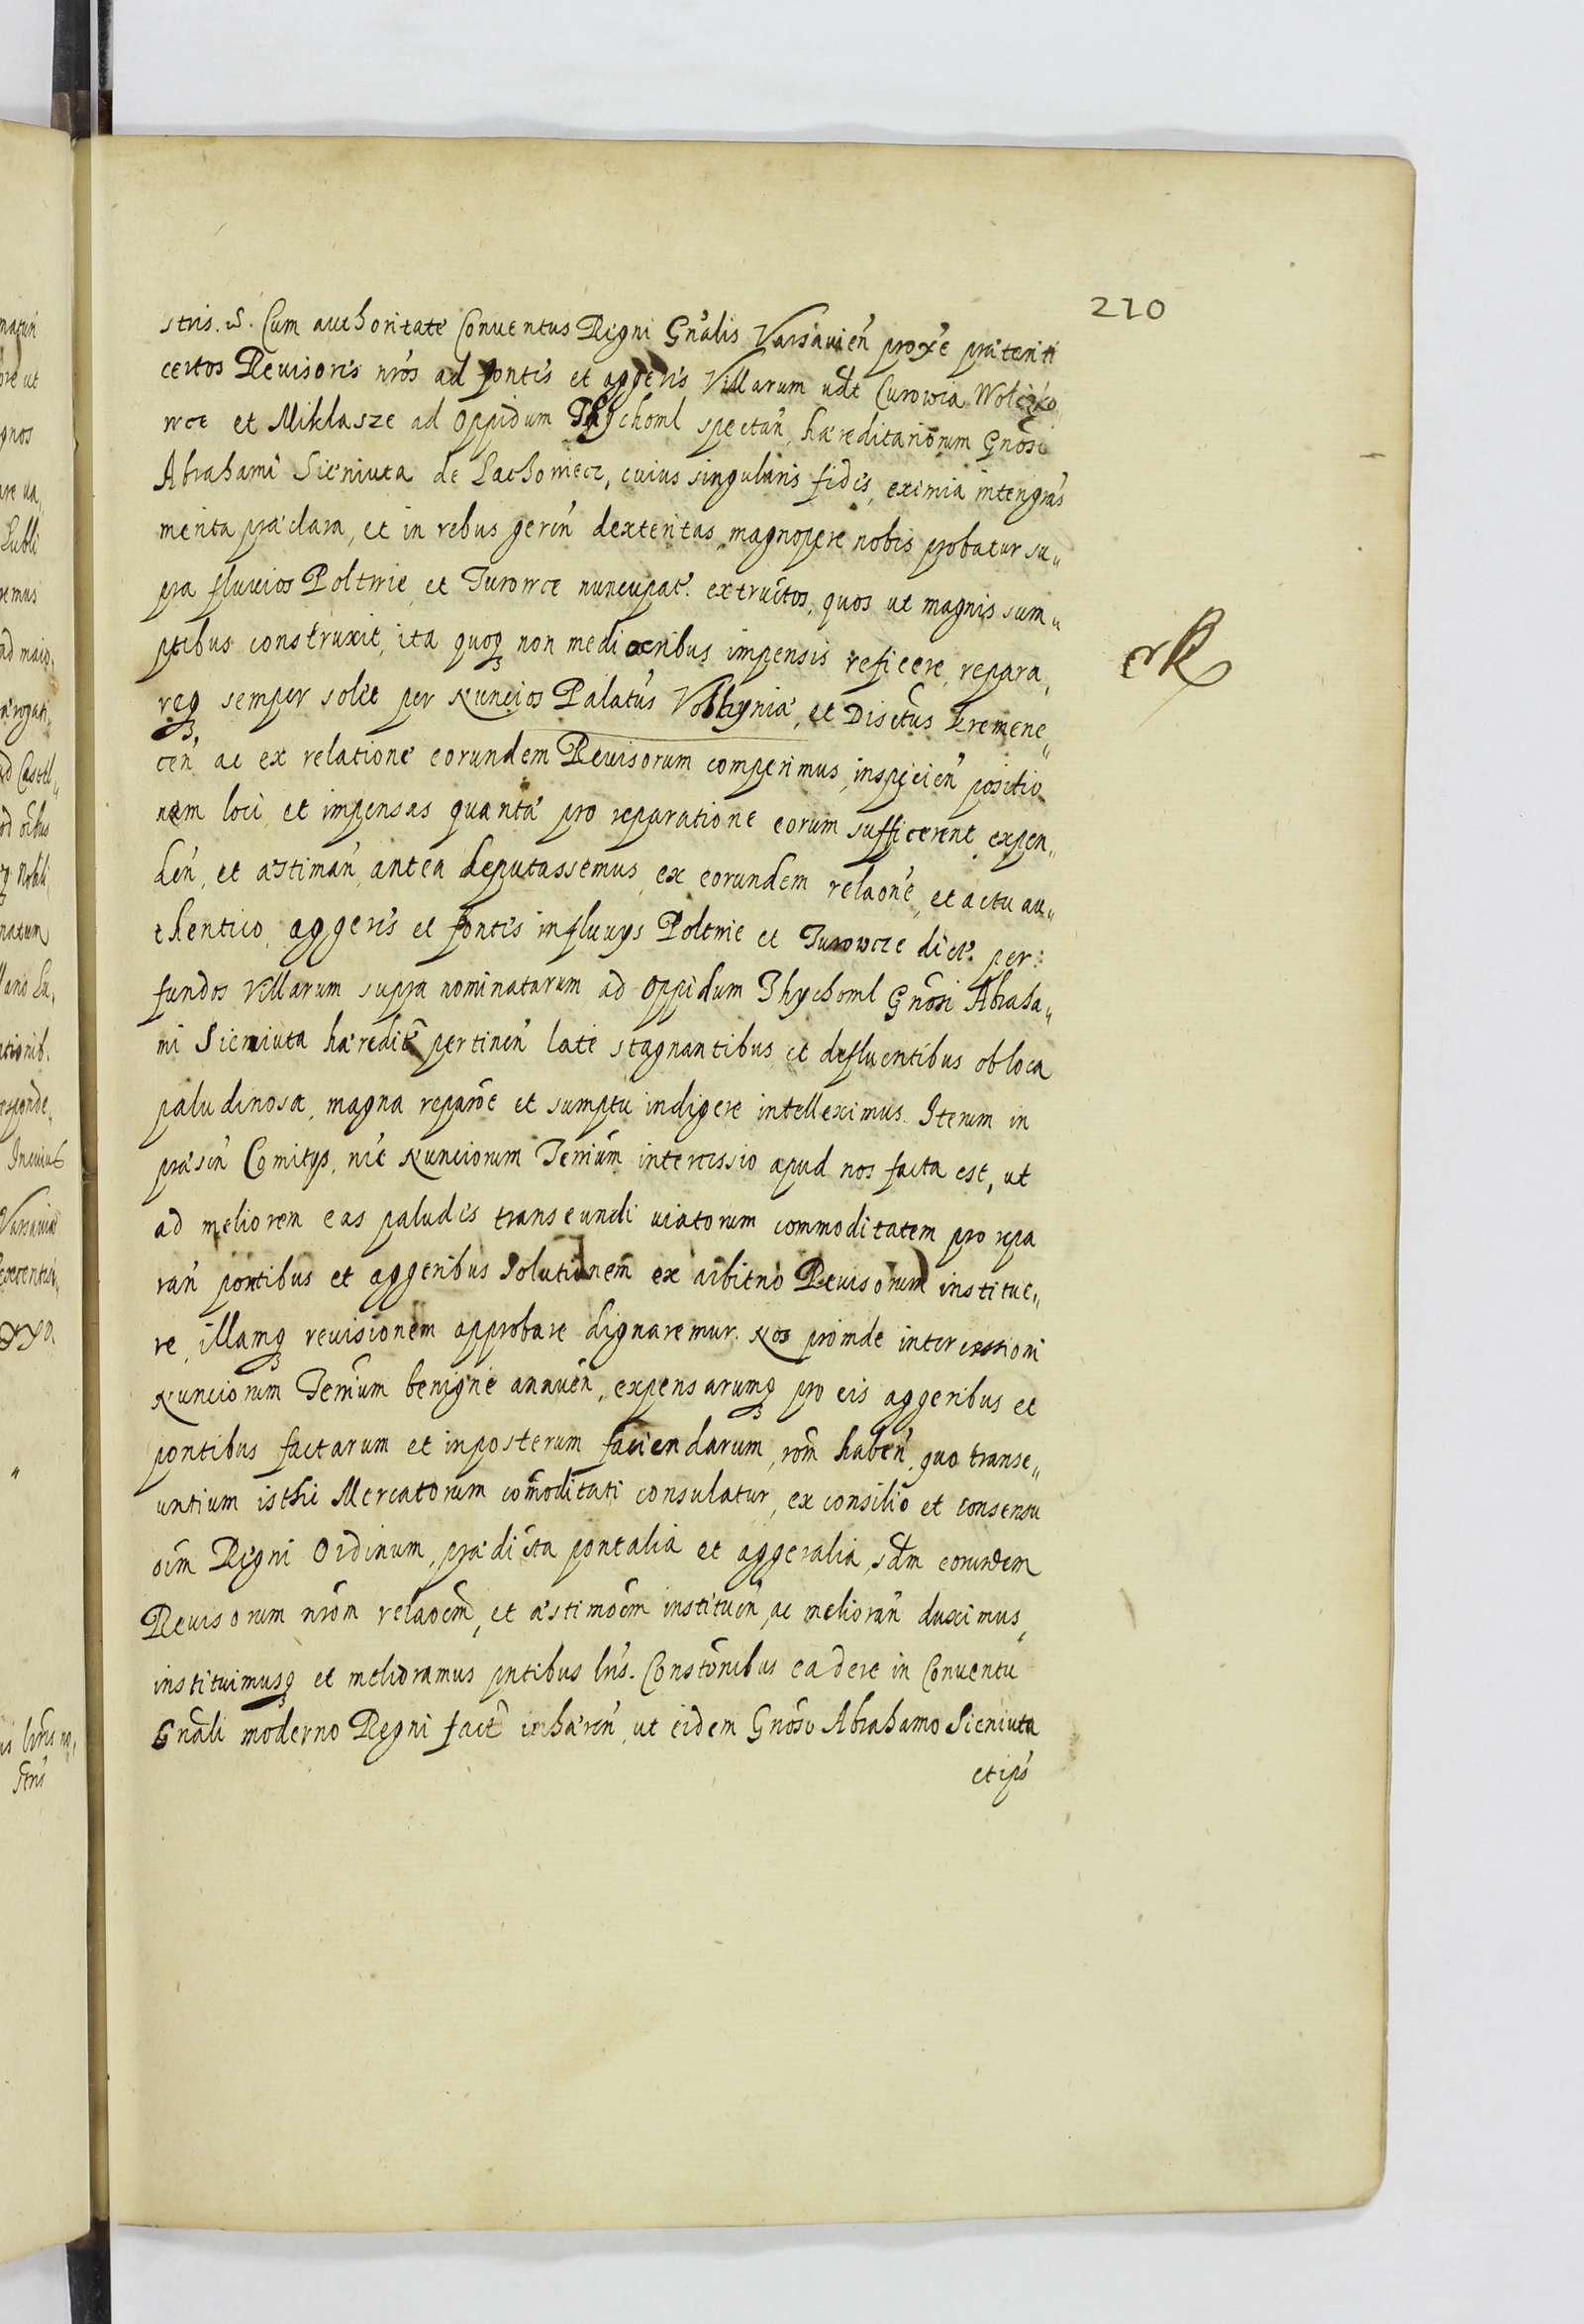 210
stris. &. Cum authoritate Conuentus Regni Gn̄alis Varsauien̄ prox̄e præteriti
certos Reuisores nr̄os ad pontes et aggeres Villarum vdt Curowia Wolicżko
wce et Miklasze ad Oppidum Thychoml spectan̄, hæreditariorum Gn̄osi
Abrahami Sieniuta de Lachowiecz, cuius singularis fides, eximia integrās
merita præclara, et in rebus geren̄ dexteritas, magnopere nobis probatur su„
pra fluuios Poltwie et Turowce nuncupat. extructos, quos ut magnis sum„
ptibus construxit, ita quoq3 non mediocribus impensis reficere, repara„
req3 semper solet per Nuncios Palatūs Volhyniæ, et Disctūs Kremene„
cen̄ ac ex relatione eorundem Reuisorum comperimus, inspicien̄ positio
nem loci et impensas quantæ pro reparatione eorum sufficerent expen„
den̄, et æstiman̄ antea deputassemus, ex eorundem relaōne, et actu au„
thentico aggeres et pontes in fluuys Poltwie et Turowcze dict. per
fundos Villarum supra nominatarum ad Oppidum Thychoml Gn̄osi Abraha„
mi Sieniuta hæredit̄ pertinen̄ late stagnantibus et defluentibus ob loca
paludinosa, magna reparōe et sumptu indigere intelleximus. Iterum in
præsen̄ Comitys, nūc Nunciorum Terrēm intercessio apud nos facta est, ut
ad meliorem eas paludes transeundi uiatorum commoditatem pro repa
ran̄ pontibus et aggeribus Solutionem̄ ex arbitrio Reuisorum institue„
re, illamq3 reuisionem approbare dignaremur. Nos proinde intercessioni
Nunciorum Terrēum benigne annuen̄, expensarumq3 pro eis aggeribus et
pontibus factarum et inposterum faciendarum, rōm haben̄, quo transe„
untium isthic Mercatorum com̄oditati consulatur, ex consilio et consensu
oīm Regni Ordinum, prædicta pontalia et aggeralia, sdm eorundem
Reuisorum nr̄om relaōem, et æstimōem instituen̄, ac melioran̄ duximus,
instituimusq3 et melioramus pntibus lrīs. Constōnibus ea de re in Conuentu
Gnāli moderno Regni fact̄ inhæren̄, ut eidem Gnōso Abrahamo Sieniuta
et ips̄